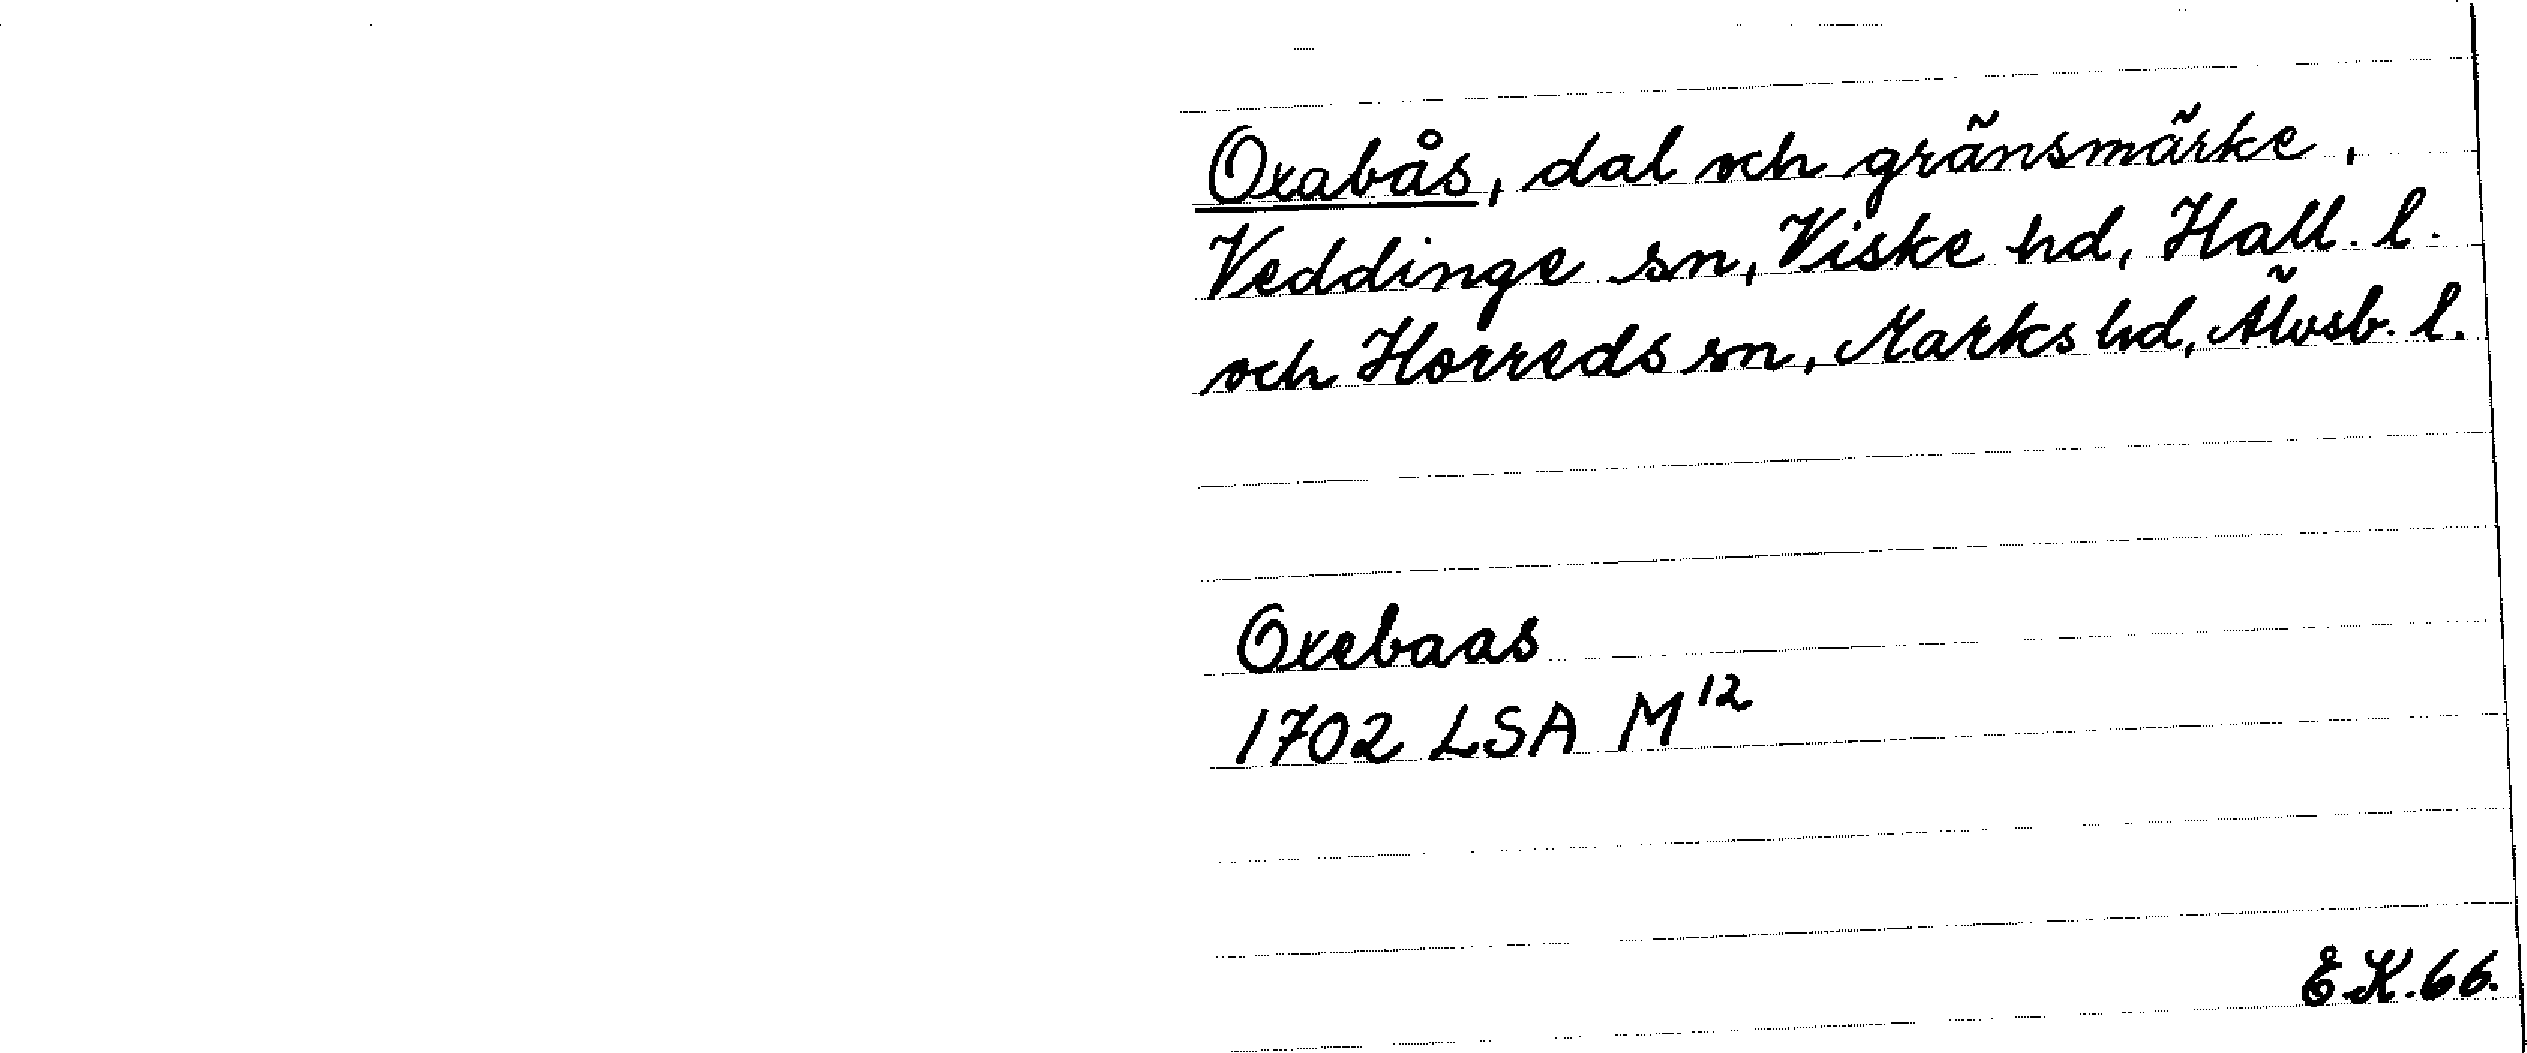 Oxabås, dal och gränsmärke,
Veddinge sn, Viske hd, Hall. l.
och Horreds sn, Marks hd, Älvsb. l.
Oxebaas
1702 LSA M¹²
E.K. 66.